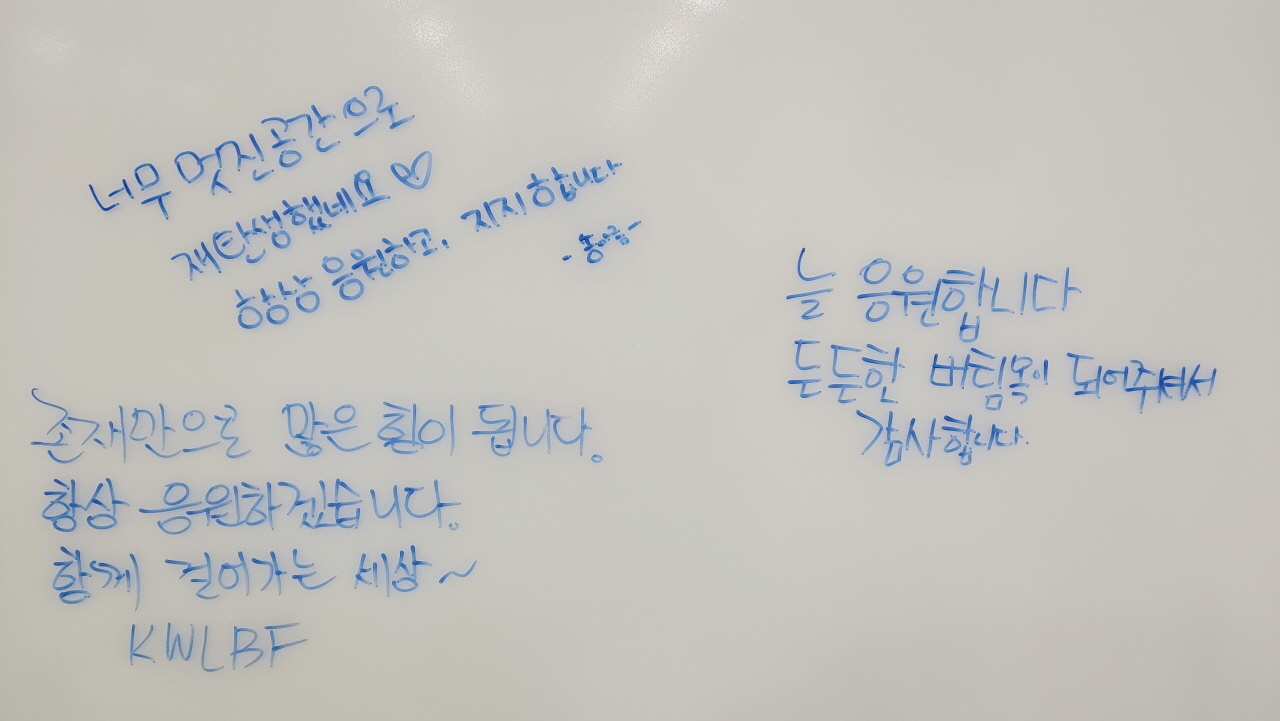 너무 멋진 공간으로
재탄생했네요 ♡
항상 응원하고, 지지합니다
존재만으로 많은 힘이 됩니다.
항상 응원하겠습니다.
함께 걸어가는 세상~
KWLBF
늘 응원합니다
든든한 버팀목이 되어주셔서
감사합니다.